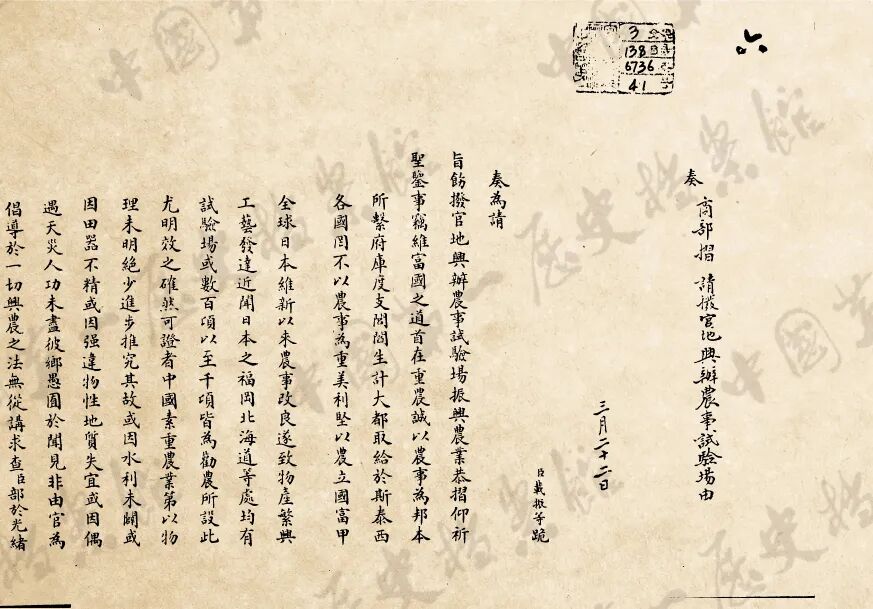 六
3
138
6736
41
奏
商部摺 請撥官地興辦農事試驗場由
三月二十二日
臣載振等跪
奏為請
旨飭撥官地興辦農事試驗場振興農業恭摺仰祈
聖鑒事竊維富國之道首在重農誠以農事為邦本
所繫府庫度支閭閻生計大都取給於斯泰西
各國罔不以農事為重美利堅以農立國富甲
全球日本維新以来農事改良遂致物產繁興
工藝發達近聞日本之福岡北海道等處均有
試驗場或數百項以至千項皆為勸農所設此
尤明效之確然可證者中國素重農業第以物
理未明絕少進步推究其故或因水利未闢或
因田器不精或因强違物性地質失宜或因偶
遇天災人功未盡彼鄉愚囿於聞見非由官為
倡導於一切興農之法無從講求查臣部於光緒
中國第一歷史檔案館